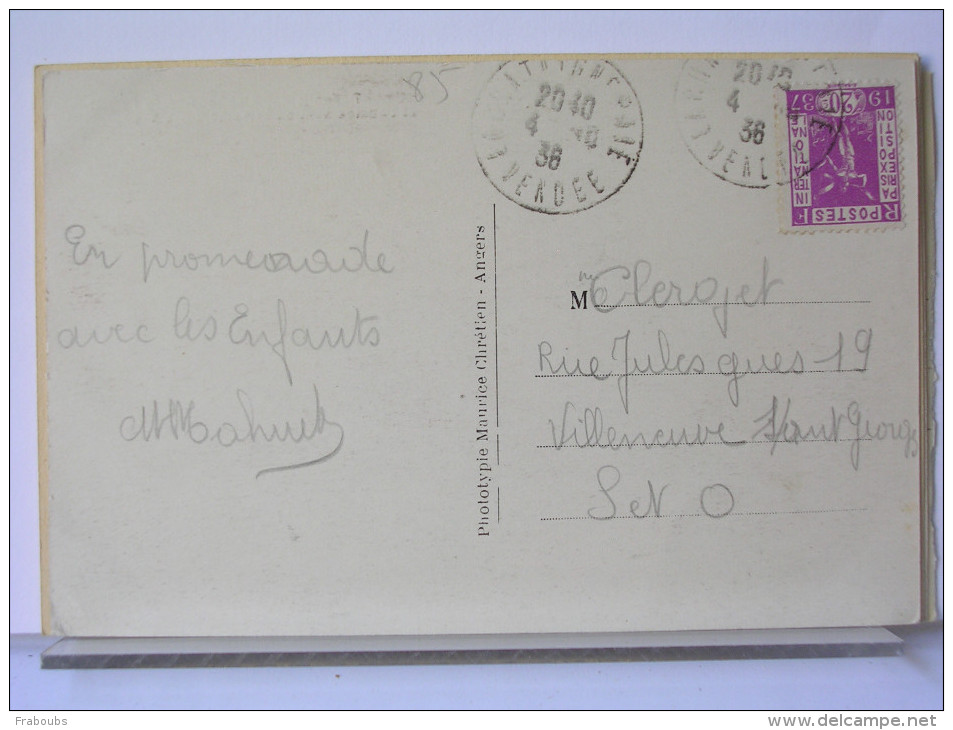 85
LA CHATAIGNERAIE
20 40
4 10
36
VENDEE
20 40
4
36
1937
EXPOSITION
PARIS
INTERNATIONALE
POSTES
RF
En promenade
avec les Enfants
Phototypie Maurice Chrétien - Angers
M me Clerget
Rue Jules gues 19
Villeneuve Saint Georges
S et O
Fraboubs
www.delcampe.net